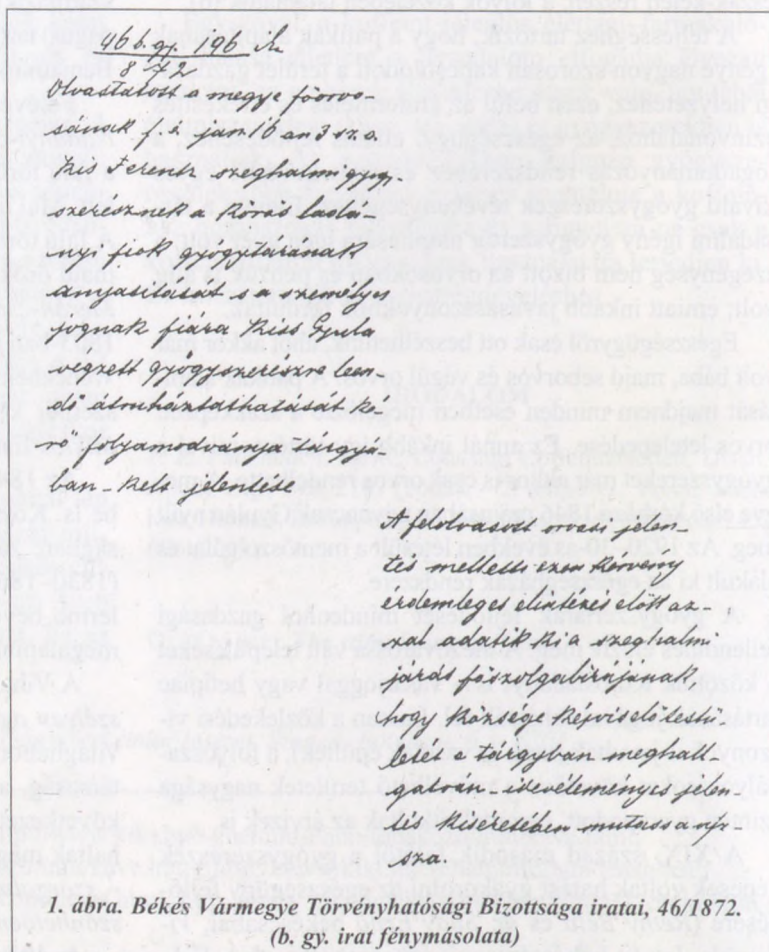 46 b. gy. 196.
872
Olvastatott a megye főorvo-
sának f. é. jan 16 án 3 sz a.
Kiss Ferencz szeghalmi gyógy-
szerésznek a Körös ladá-
nyi fiók gyógytárának
anyásitását s a személyes
jognak fiára Kiss Gyula
végzett gyógyszerészre leen-
dő átruháztathatását ké-
rő folyamodványa tárgyá-
ban kelt jelentése
A főldvrosi
tés melletti ezen kérvény
érdemleges elintézés előtt az-
zal adatik ki a szeghalmi
járás főszolgabirájának,
hogy községe képviselő testü-
letét e tárgyban meghall-
gatván véleményes jelen-
tés kiséretében mutassa visz-
sza.
1. ábra. Békés Vármegye Törvényhatósági Bizottsága iratai, 46/1872.
(b. gy. irat fénymásolata)